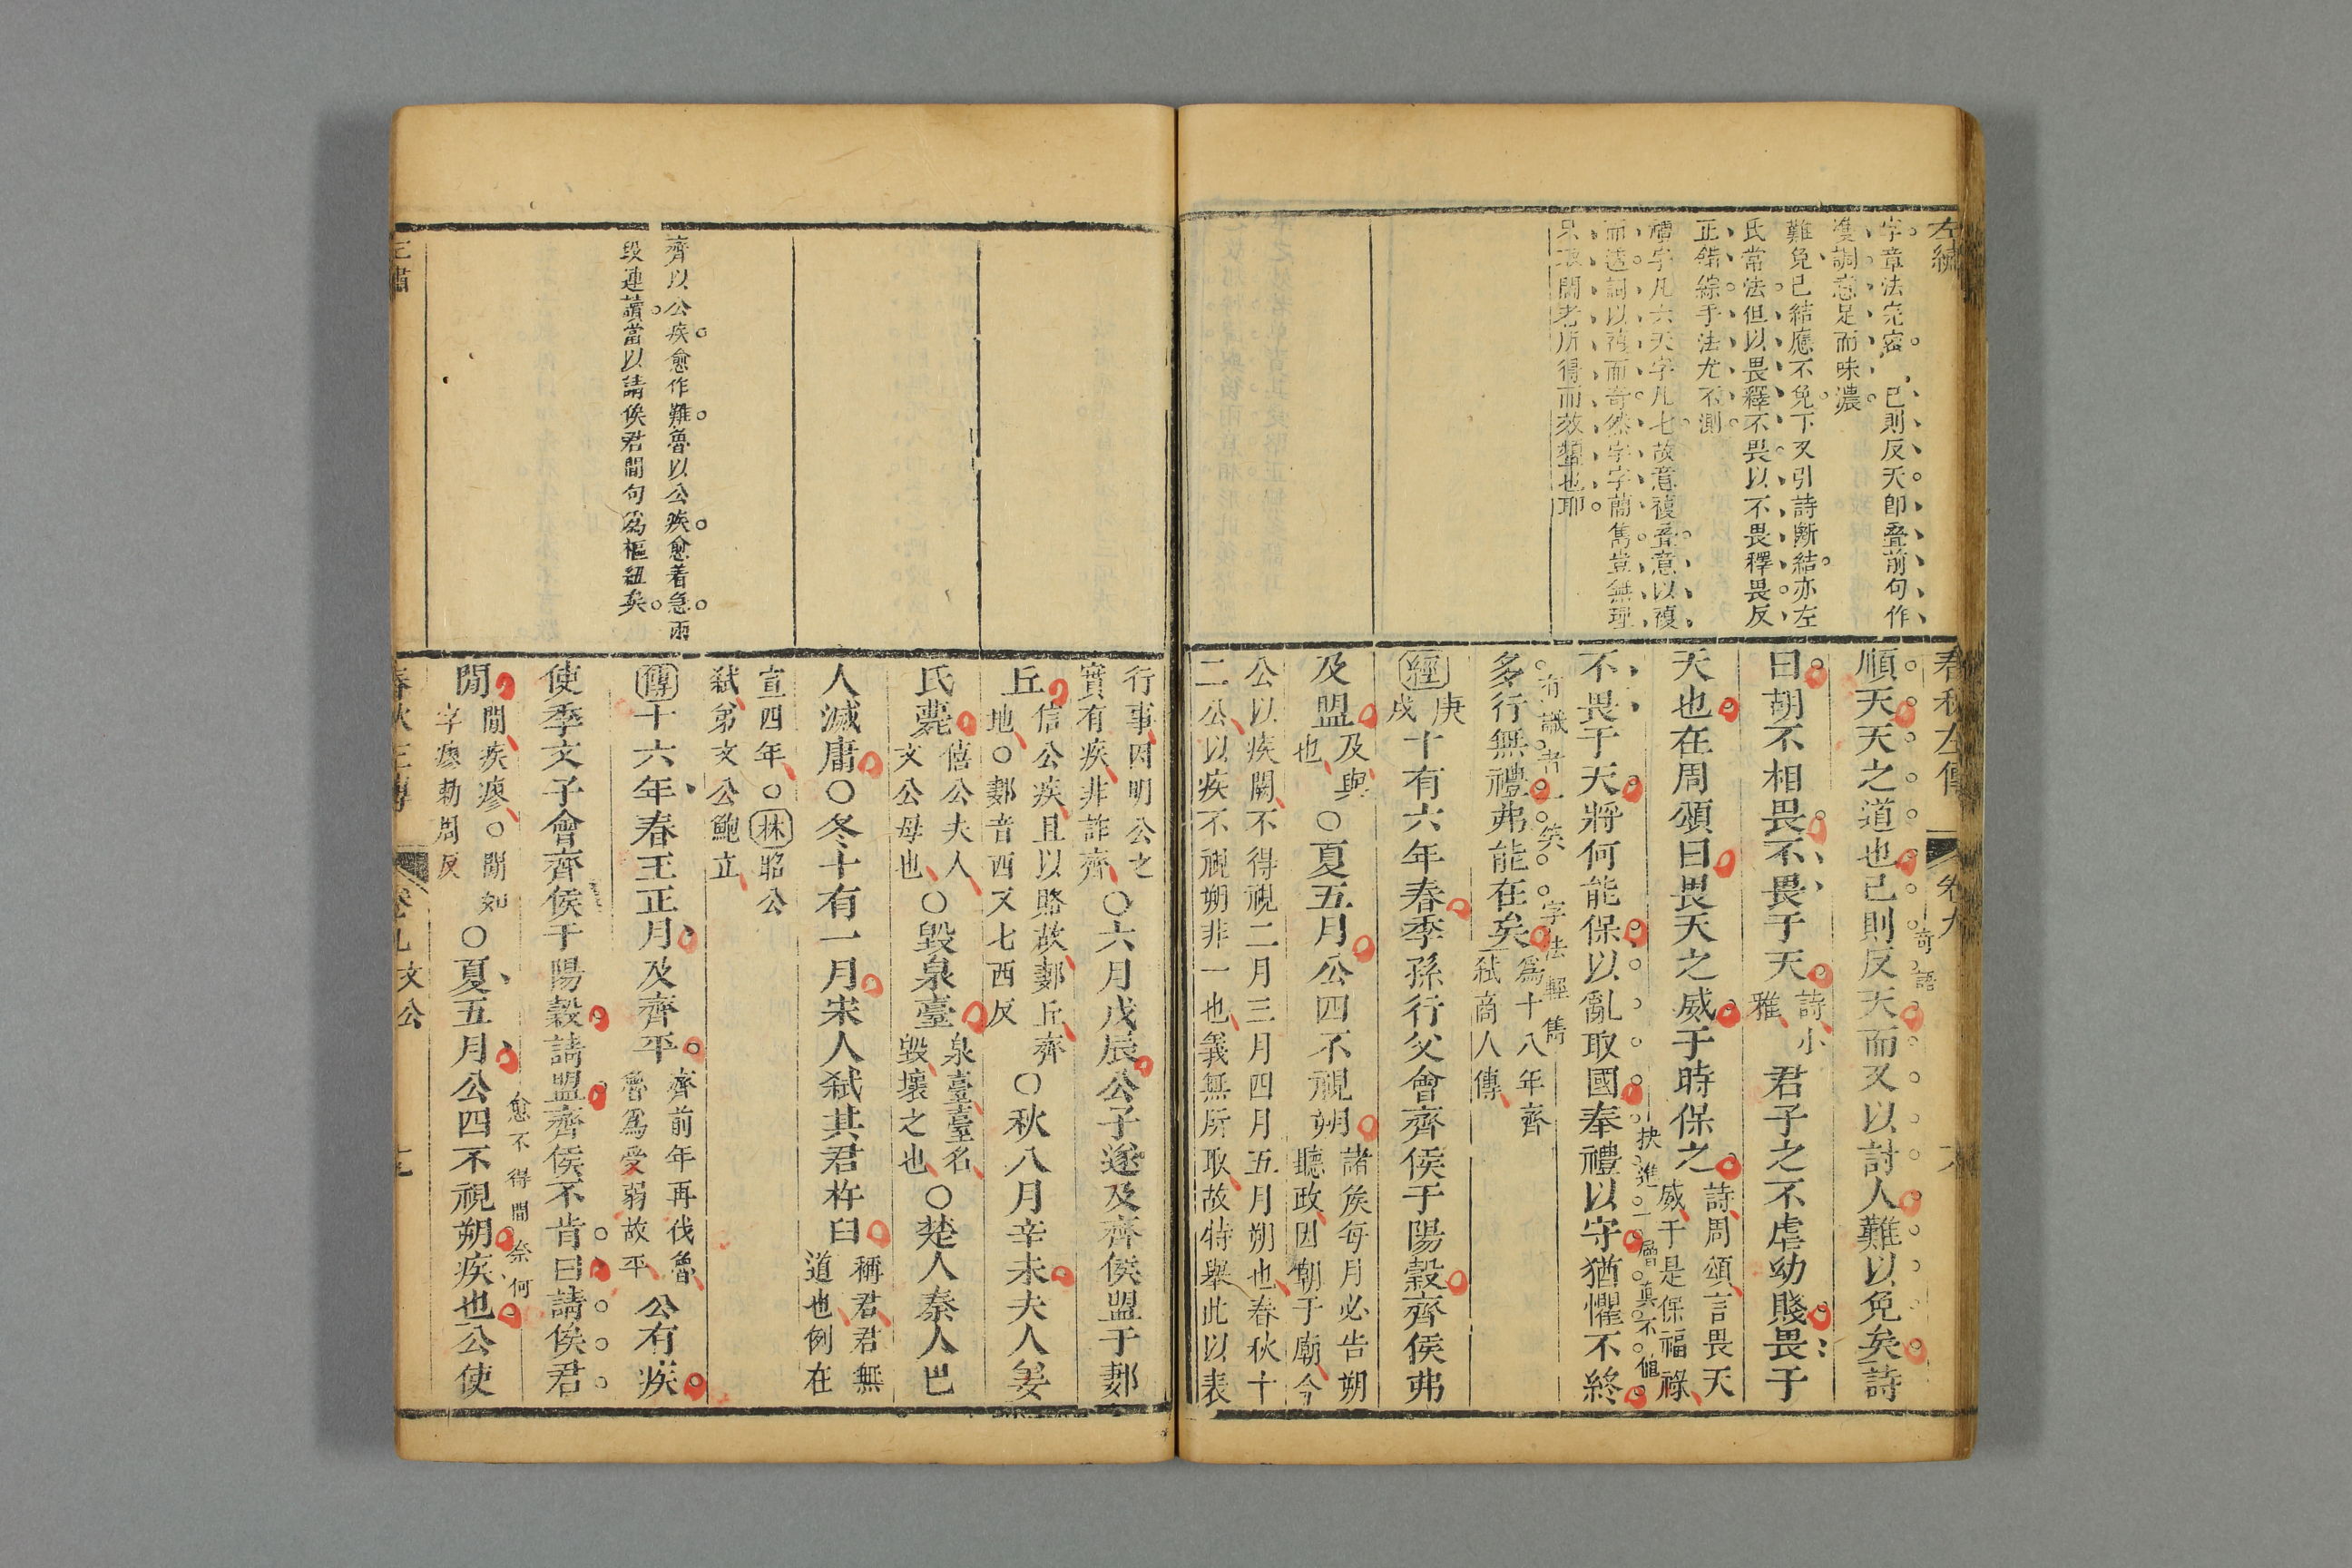 左繡
字章法完密 己則反天卽叠前句作
雙調意足而味濃
難免已結應不免下又引詩斷結亦左
氏常法但以畏釋不畏以不畏釋畏反
正錯綜手法尤不測
禮字凡六天字凡七故意複叠意以複
而透詞以複而奇然字字簡雋豈無理
只求閙者所得而效顰也耶
春秋左傳 卷九
順天天之道也己則反天而又以討人難以免矣詩
奇語
曰胡不相畏不畏于天
詩小
雅
君子之不虐幼賤畏于
天也在周頌曰畏天之威于時保之
詩周頌言畏天
威于是保福祿
不畏于天將何能保以亂取國奉禮以守猶懼不終
抉進一層真不值
多行無禮弗能在矣
有識者一笑 字法輕雋
爲十八年齊
弑商人傳
經
庚
戌
十有六年春季孫行父會齊侯于陽穀齊侯弗
及盟
及與
也
〇夏五月公四不視朔
諸侯每月必告朔
聽政因朝于廟今
公以疾闕不得視二月三月四月五月朔也春秋十
二公以疾不視朔非一也義無所取故特舉此以表
行事因明公之
實有疾非詐齊
〇六月戊辰公子遂及齊侯盟于郪
丘
信公疾且以賂故郪丘齊
地〇郪音西又七西反
〇秋八月辛未夫人姜
氏薨
僖公夫人
文公母也
〇毀泉臺
泉臺臺名
毀壞之也
〇楚人秦人巴
人滅庸〇冬十有一月宋人弑其君杵臼
稱君君無
道也例在
宣四年〇林昭公
弑弟文公鮑立
齊以公疾愈作難魯以公疾愈着急兩
段連讀當以請俟君間句爲樞紐矣
傳十六年春王正月及齊平
齊前年再伐魯
魯爲受弱故平
公有疾
使季文子會齊侯于陽穀請盟齊侯不肯曰請俟君
愈不得間奈何
間
間疾瘳〇間如
字瘳勑周反
〇夏五月公四不視朔疾也公使
春秋左傳 卷九文公